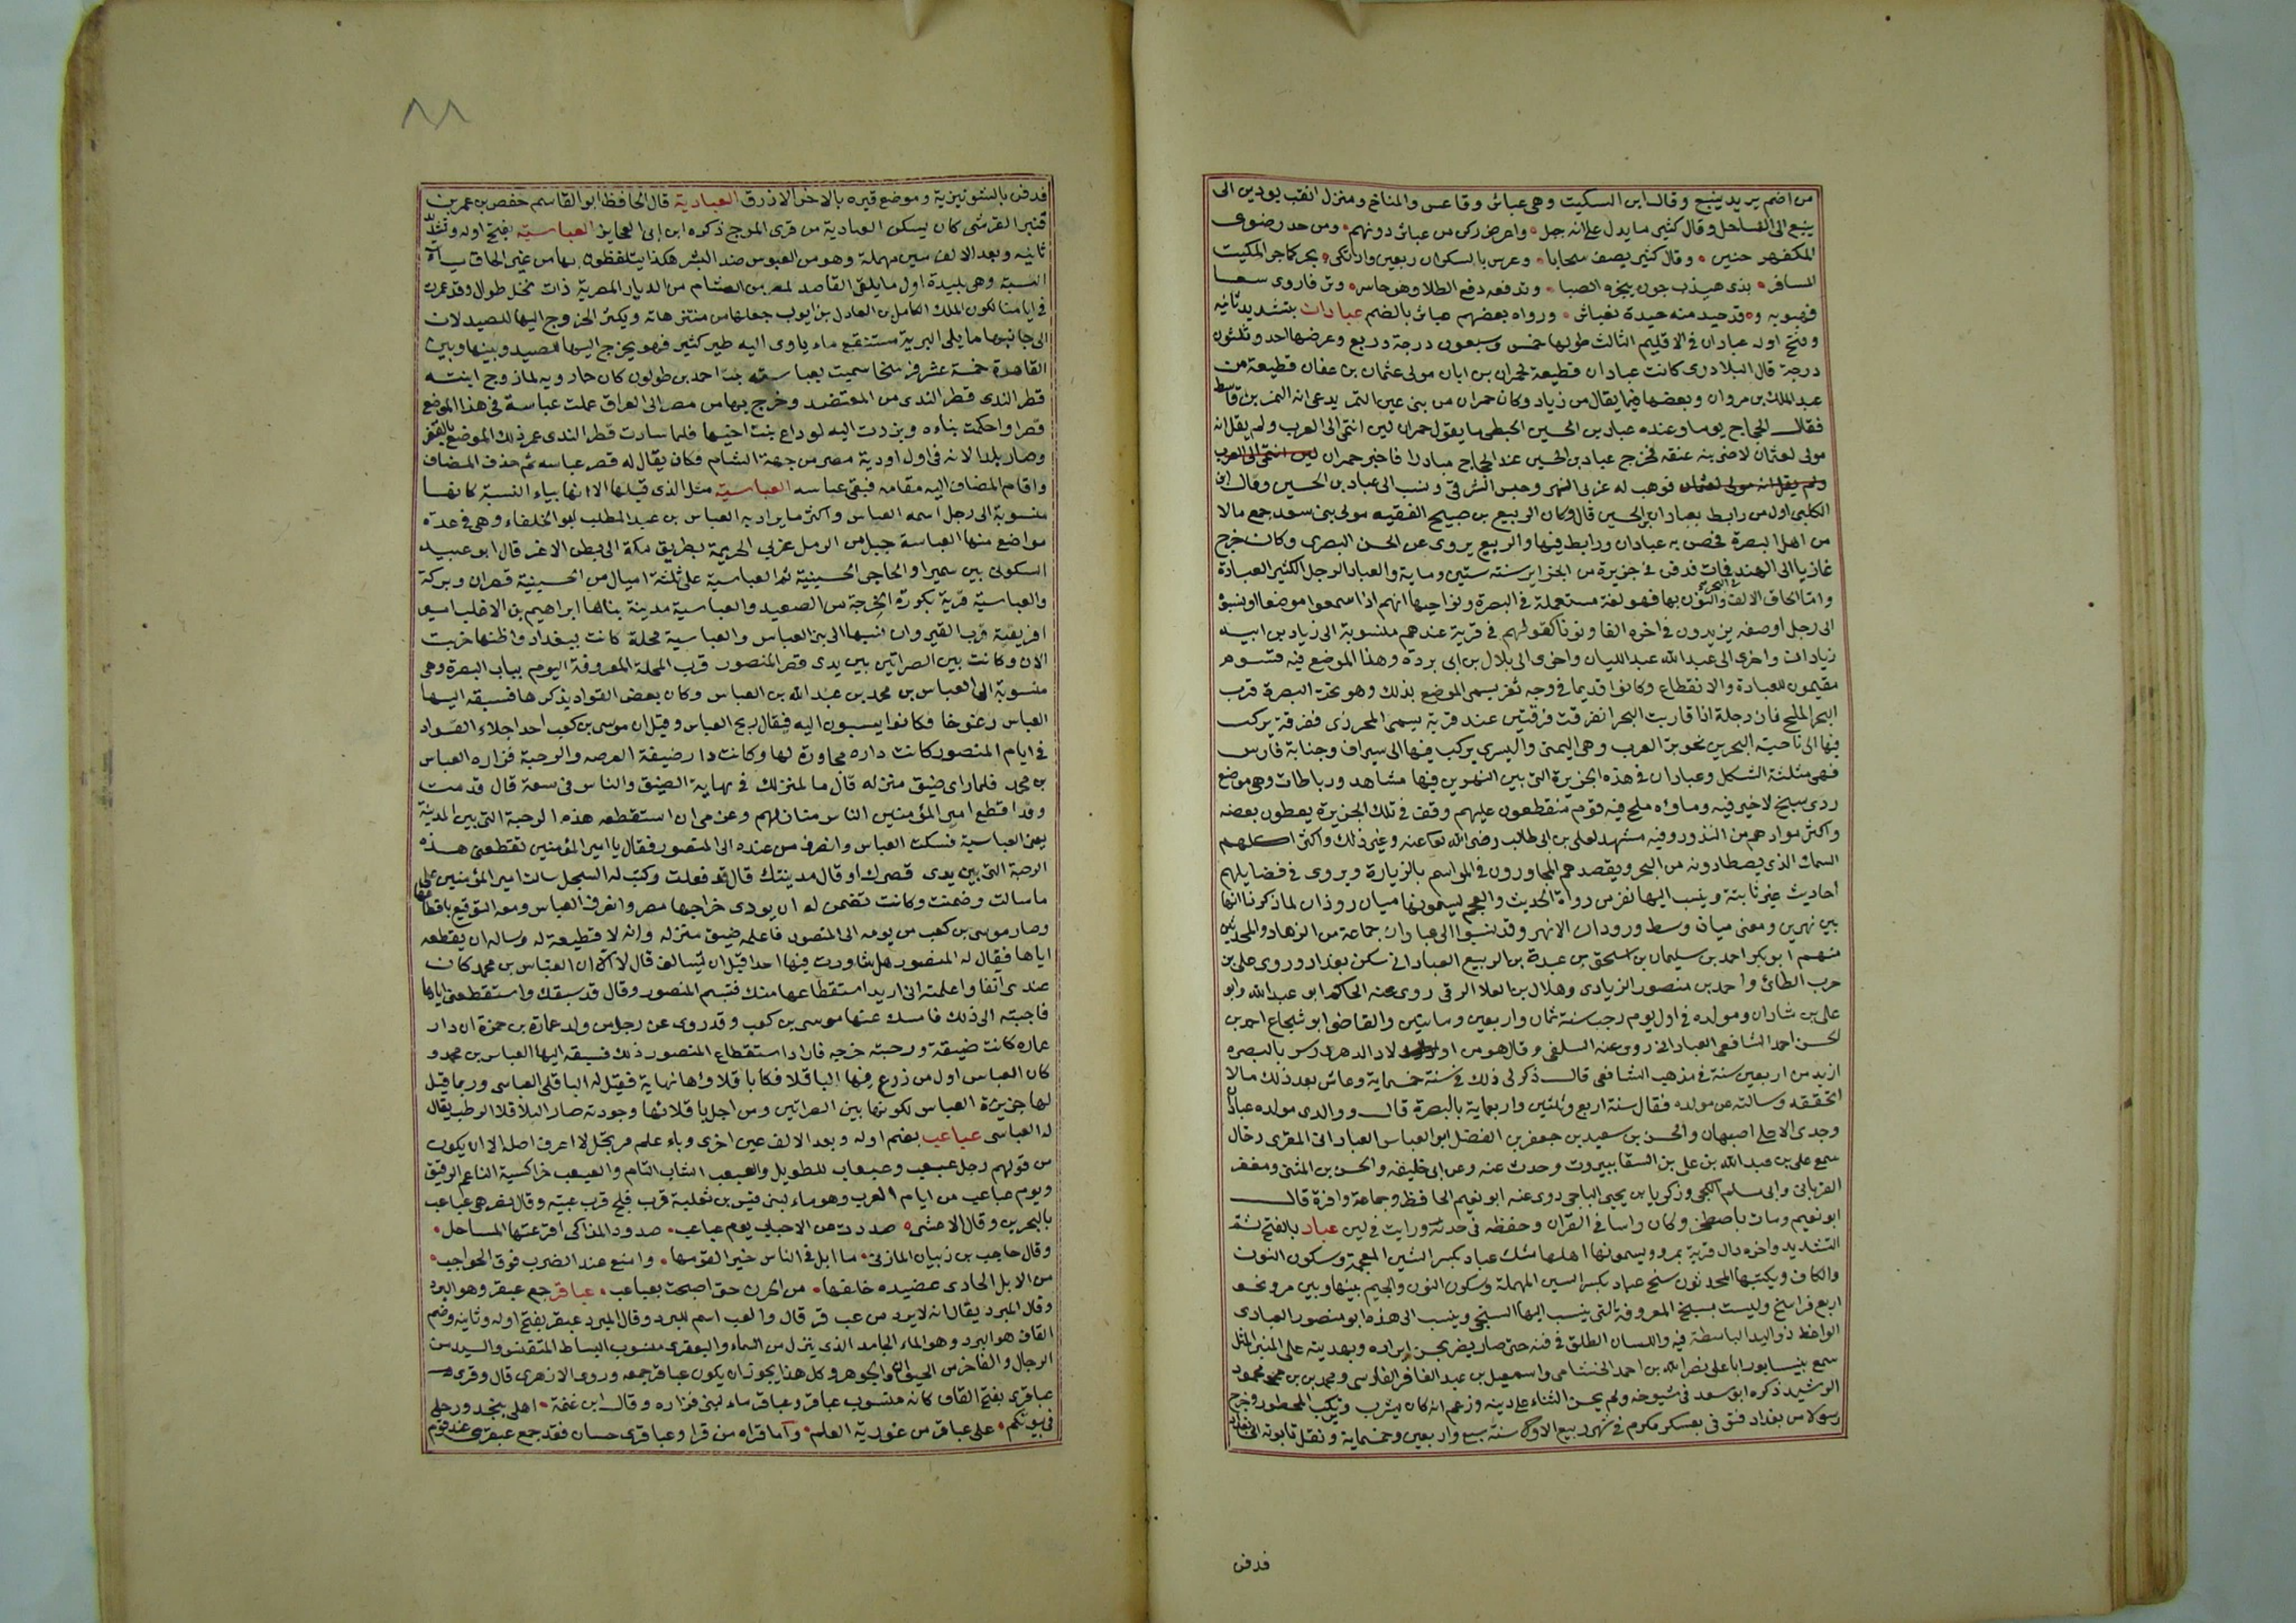 من اضم يريد ينبع وقال ابن السكيت وهى عباثر وقاعس والمناخ ومنزل انقب يودين الى
ينبع الى الساحل وقال كثير مايدل على انه جبل واعرض ركن من عباثر دونهم ومن حد رضوى
المكفهر حنين وقال كثير يصف سحابا وعرس بالسكران ربعين وارتكى يجر كما جر المكيث
المسافر بذى هيدب جون ينجزه الصبا وتدفعه دفع الطلا وهو حاسر
ورواه بعضهم عباثر بالضم عبادان بتشديد ثانيه
وفتح اوله عبادان فى الاقليم الثالث طولها خمس وسبعون درجة وربع وعرضها احد وثلثون
درجة قال البلاذرى كانت عبادان قطيعة لحمران بن ابان مولى عثمان بن عفان قطيعة من
عبد الملك بن مروان وبعضها فيما يقال من زياد وكان حمران من سبى عين التمر يدعى انه النمر بن قاسط
فقال الحجاج يوما وعنده عباد بن الحصين الحبطى ما يقول حمران لين انتمى الى العرب ولم يقل انه
مولى لعثمان لاضربنه عنقه فخرج عباد بن الحصين عند الحجاج مبادرا فاخبر حمران لين انتمى الى العرب
ولم يقل انه مولى لعثمان فوهب له غربى النهر وحبس الشرقى ونسب الى عباد بن الحسين وقال ابن
الكلبى اول من رابط بعبادان الحسين قال وكان الربيع بن صبيح الفقيه مولى بنى سعد جمع مالا
من اهل البصرة فحصن به عبادان ورابط فيها والربيع يروى عن الحسن البصرى وكان خرج
غازيا الى الهند فمات فدفن فى جزيرة من الجزاير سنة ستين وماية والعباد الرجل الكثير العبادة
واما الحاق الالف والنون بها فهو لغة مستعملة فى البصرة ونواحيها انهم اذا سموا موضعا او نسبوه
الى رجل او صفه يزيدون فى اخره الفا ونونا كقولهم فى قرية عندهم منسوبة الى زياد بن ابيه
زيادان واخرى الى عبد الله عبد الليان واخرى الى بلال بن ابى بردة وهذا الموضع فيه قوم
مقيمون للعبادة والانقطاع وكانوا قديما فى وجه ثغر يسمى الموضع بذلك وهو تحت البصرة قرب
البحر الملح فان دجلة اذا قاربت البحر انفرقت فرقتين عند قرية يسمى المحرزى ففرقة يركب
فيها الى ناحية البحرين نحو بر العرب وهى اليمنى واليسرى يركب فيها الى سيراف وجنابة فارس
فهى مثلثة الشكل وعبادان فى هذه الجزيرة التى بين النهرين فيها مشاهد ورباطات وهى موضع
ردى سبخ لا خير فيه وماؤه ملح فيه قوم منقطعون عليهم وقف فى تلك الجزيرة يعطون بعضه
واكثر موادهم من النذور وفيه مشهد لعلى بن ابى طالب رضى الله تعا عنه وغير ذلك واكثر اكلهم
السمك الذى يصطادونه من البحر ويقصدهم المجاورون فى المواسم بالزيارة ويروى فى فضايلهم
أحاديث غير ثابتة وينسب اليها نفر من رواة الحديث والعجم ليسمونها ميان روذان لما ذكرنا انها
بين نهرين ومعنى ميان وسط ورودان الانهر وقد نسبوا الى عبادان جماعة من الزهاد والمحدثين
منهم ابو بكر احمد بن سليمان بن اسحق بن عبدة بن الربيع العبادانى سكن بغداد وروى على بن
حرب الطائى واحمد بن منصور الزيادى وهلال بن العلا الرقى روى عنه الحاكم ابو عبد الله وابو
على بن شاذان ومولده فى اول يوم رجب سنة ثمان واربعين وماتين والقاضى ابو شجاع احمد بن
لحسن احمد الشافعى العبادانى روى عنه السلفى وقال هو من اولاد الدهر درس بالبصره
ازيد من اربعين سنة فى مذهب الشافعى قال ذكر لى ذلك فى سنة خمسماية وعاش بعد ذلك مالا
اتحققه وسالته عن مولده فقال سنة اربع وثلثين واربعماية بالبصرة قال ووالدى مولده عبادان
وجدى الاعلى اصبهان والحسن بن سعيد بن جعفر بن الفضل ابو العباس العبادانى المقرى رحال
سمع على بن عبد الله بن على بن السقا ببيروت وحدث عنه وعن ابى خليفه والحسن بن المثنى ومغفر
الفريابى وابى مسلم الكجى وزكريا بن يحيى الباجى روى عنه ابو نعيم الحافظ وجماعة وافرة قال
ابو نعيم ومات باصطخر وكان راسا فى القران وحفظه فى حدثه ورايت فى لين عباد بالفتح ثم
التشديد واخره دال قرية بمرو ويسمونها اهلها شنك عباد بكسر الشين المعجمة وسكون النون
والكاف ويكتبها المحدثون سنج عباد بكسر السين المهملة وسكون النون والجيم بينها وبين مرو نحو
اربع فراسخ وليست بسنج المعروفة التى ينسب اليها السنجى وينسب الى هذه ابو منصور العبادى
الواعظ ذو اليد الباسطة فيه واللسان الطلق فى فنه حتى صار يضرب بحسن ايراده وبهديته على المنبر المثل
سمع بنيسابور ابا على نصر الله بن احمد الخشنامى واسمعيل بن عبد الغافر الفارسى ومحمد بن محمد محمود
الرشيد ذكره ابو سعد فى شيوخه ولم يحسن الثناء على دينه وزعم انه كان يشرب ويرتكب المحظور وخرج
رسولا من بغداد فتوفى بعسكر مكرم فى شهر ربيع الاول سنة سبع واربعين وخمسماية ونقل تابوته الى بغداد
فدفن
٨٨
فدفن بالشونيزية وموضع قبره بالاخر الازرق العبادية قال الحافظ ابو القاسم حفص بن عمر بن
قنبر القرشى كان يسكن العبادية من قرى المرج ذكره ابن ابى العجايز العباسية بفتح اوله وتشديد
ثانيه وبعد الالف سين مهملة وهو من العبوس ضد البشر هكذا يتلفظون بها من غير الحاق ياء
النسبة وهى بليدة اول ما يلقى القاصد لمصر من الشام من الديار المصرية ذات نخل طوال وقد عمرت
فى ايامنا لكون الملك الكامل بن العادل بن ايوب جعلها من منتزهاته ويكثر الخروج اليها للصيد لان
الى جانبها مما يلى البرية مستنقع ماء ياوى اليه طير كثير فهو يخرج اليها للصيد وبينها وبين
القاهرة خمسة عشر فرسخا سميت بعباسة بنت احمد بن طولون كان خمارويه لما زوج ابنته
قطر الندى قطر الندى من المعتضد وخرج بها من مصر الى العراق عملت عباسة فى هذا الموضع
قصرا واحكمت بناءه وبرزت اليه لوداع بنت اخيها فلما سارت قطر الندى عمر ذلك الموضع بالقصر
وصار بلدا لانه فى اول اودية مصر من جهة الشام فكان يقال له قصر عباسه ثم حذف المضاف
واقام المضاف اليه مقامه فبقى عباسه العباسية مثل الذى قبلها الا انها بياء النسبة كانها
منسوبة الى رجل اسمه العباس واكثر ما يراد به العباس بن عبد المطلب ابو الخلفاء وهى فى عدة
مواضع منها العباسة جبل من الرمل غربى الخزيمية بطريق مكة الى بطن الاغر قال ابو عبيد
السكونى بين سميرا والحاجر الحسينية ثم العباسية على ثلثة اميال من الحسينية قصران وبركة
والعباسية قرية بكورة الخرجة من الصعيد والعباسية مدينة بناها ابراهيم بن الاغلب امير
افريقية قرب القيروان نسبها الى بنى العباس والعباسية محلة كانت ببغداد واظنها خربت
الان وكانت بين الصراتين بين يدى قصر المنصور قرب المحلة المعروفة اليوم بباب البصرة وهى
منسوبة الى العباس بن محمد بن عبد الله بن العباس وكان بعض القواد يذكرها فسبقه اليها
العباس فكانوا يسبون اليه فيقال ربح العباس وقيل ان موسى بن كعب احد اجلاء القواد
فى ايام المنصور كانت داره مجاورة لها وكانت دار ضيقة العرصه والرحبة فزاره العباس
بن محمد فلما راى ضيق منزله قال ما لمنزلك فى نهاية الضيق والناس فى سعة قال قدمت
وقد اقطع امير المؤمنين الناس منازلهم وعزمى ان استقطعه هذه الرحبة التى بين المدينة
يعنى العباسية فسكت العباس وانصرف من عنده الى المنصور فقال يا امير المؤمنين تقطعنى هذه
الرحبة التى بين يدى قصرك او قال مدينتك قال قد فعلت وكتب له السجل سالت امير المؤمنين
ما سالت وضمنت وكانت تضمن له ان يودى خراجها مصر وانصرف العباس ومعه التوقيع باقطاعها
وصار موسى بن كعب من يومه الى المنصور فاعلمه ضيق منزله وانه لا قطيعة له وساله ان يقطعه
اياها فقال له المنصور هل شاورت فيها احدا قبل ان تسالنى قال لا الا ان العباس بن محمد كان
عندى انفا واعلمته انى اريد استقطاعها منك فتبسم المنصور وقال قد سبقك واستقطعنى اياها
فاجبته الى ذلك فامسك عنها موسى بن كعب وقد روى عن رجل من ولد عمارة بن حمزة ان دار
عماره كانت ضيقة ورحبته خرجه فاراد استقطاع المنصور ذلك فسبقه اليها العباس بن محمد و
كان العباس اول من زرع فيها الباقلا فكان باقلاؤها نهاية فقيل له الباقلى العباسى وربما قيل
لها جزيرة العباس لكونها بين الصراتين ومن اجل باقلائها وجودته صار الباقلا الرطب يقال
له العباسى عباعب بضم اوله وبعد الالف عين اخرى وباء علم مرتجل لا اعرف اصله الا ان يكون
من قولهم رجل عبعب وعبعاب للطويل والعبعب الشاب التام والعبعب من اكسية الناعم الرقيق
ويوم عباعب من ايام العرب وهو ماء لبنى قيس بن ثعلبة قرب فلج قرب عبية وقال نصر هى عباعب
بالبحرين وقال الاعشى صددت عن الاحياء يوم عباعب صدود المذاكى اقرعتها المساحل
وقال حاجب بن ذبيان المازنى ما ابل فى الناس خير لقومها وامنع عند الضرب فوق الحواجب
من الابل الحادى عضيده خلفها من الحزن حتى اصبحت بعباعب عباقر جمع عبقر وهو البرد
وقال المبرد يقال انه لابرد من عب قر قال والعب اسم للبرد وقال المبرد عبقر بفتح اوله وثانيه وضم
القاف هو البرد وهو الماء الجامد الذى ينزل من السماء والعبقرى منسوب البساط المنقش والسيد من
الرجال والفاخر من الحيوان والجوهر وكل هذا يجوز ان يكون عباقر جمعه وروى الازهرى قال وقرى
عباقرى بفتح القاف كانه منسوب عباقر وعباقر ماء لبنى فزاره وقال ابن غنمة اهلى بنجد ورحلى
فى بيوتكم على عباقر من غورية العلم واما قراه من قرا وعباقرى حسان فقد جمع عبقرى عند قوم